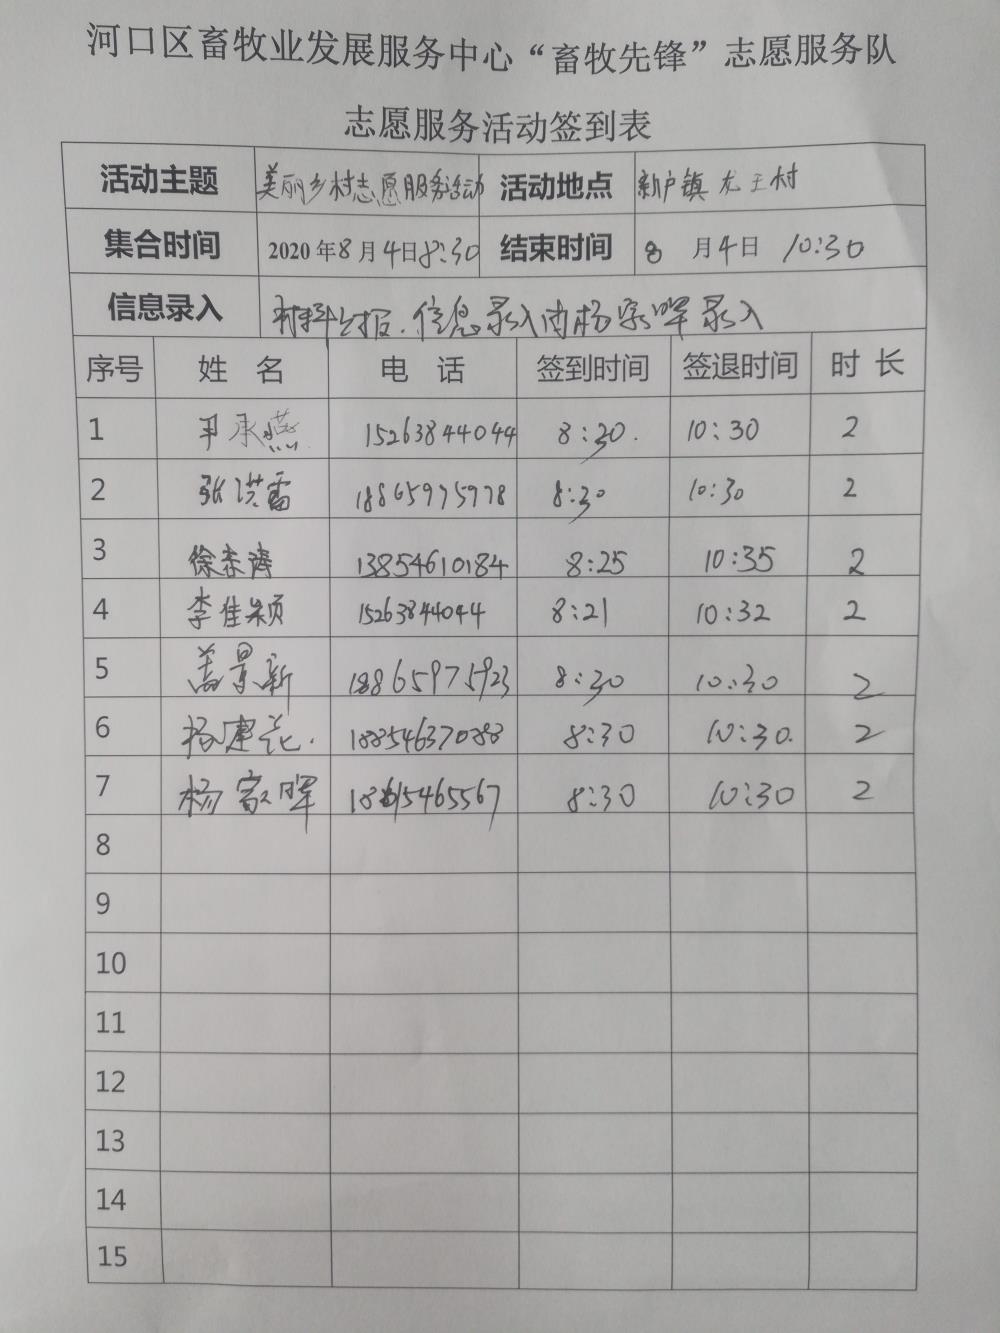 河口区畜牧业发展服务中心“畜牧先锋”志愿服务队
志愿服务活动签到表
活动主题 美丽乡村志愿服务活动 活动地点 新户镇 龙王村
集合时间 2020年8月4日8:30 结束时间 8 月4日 10:30
信息录入 材料上报.信息录入由杨家晖录入
序号 姓 名 电 话 签到时间 签退时间 时 长
1 尹承燕 15263844044 8:20. 10:30 2
2 张洪雷 18865975978 8:30 10:30 2
3 徐宗涛 13854610184 8:25 10:35 2
4 李佳颖 15263844044 8:21 10:32 2
5 盖景新 18865975923 8:30 10:30 2
6 杨建 8:30 10:30. 2
7 杨家晖 18615465567 8:30 10:30 2
8
9
10
11
12
13
14
15